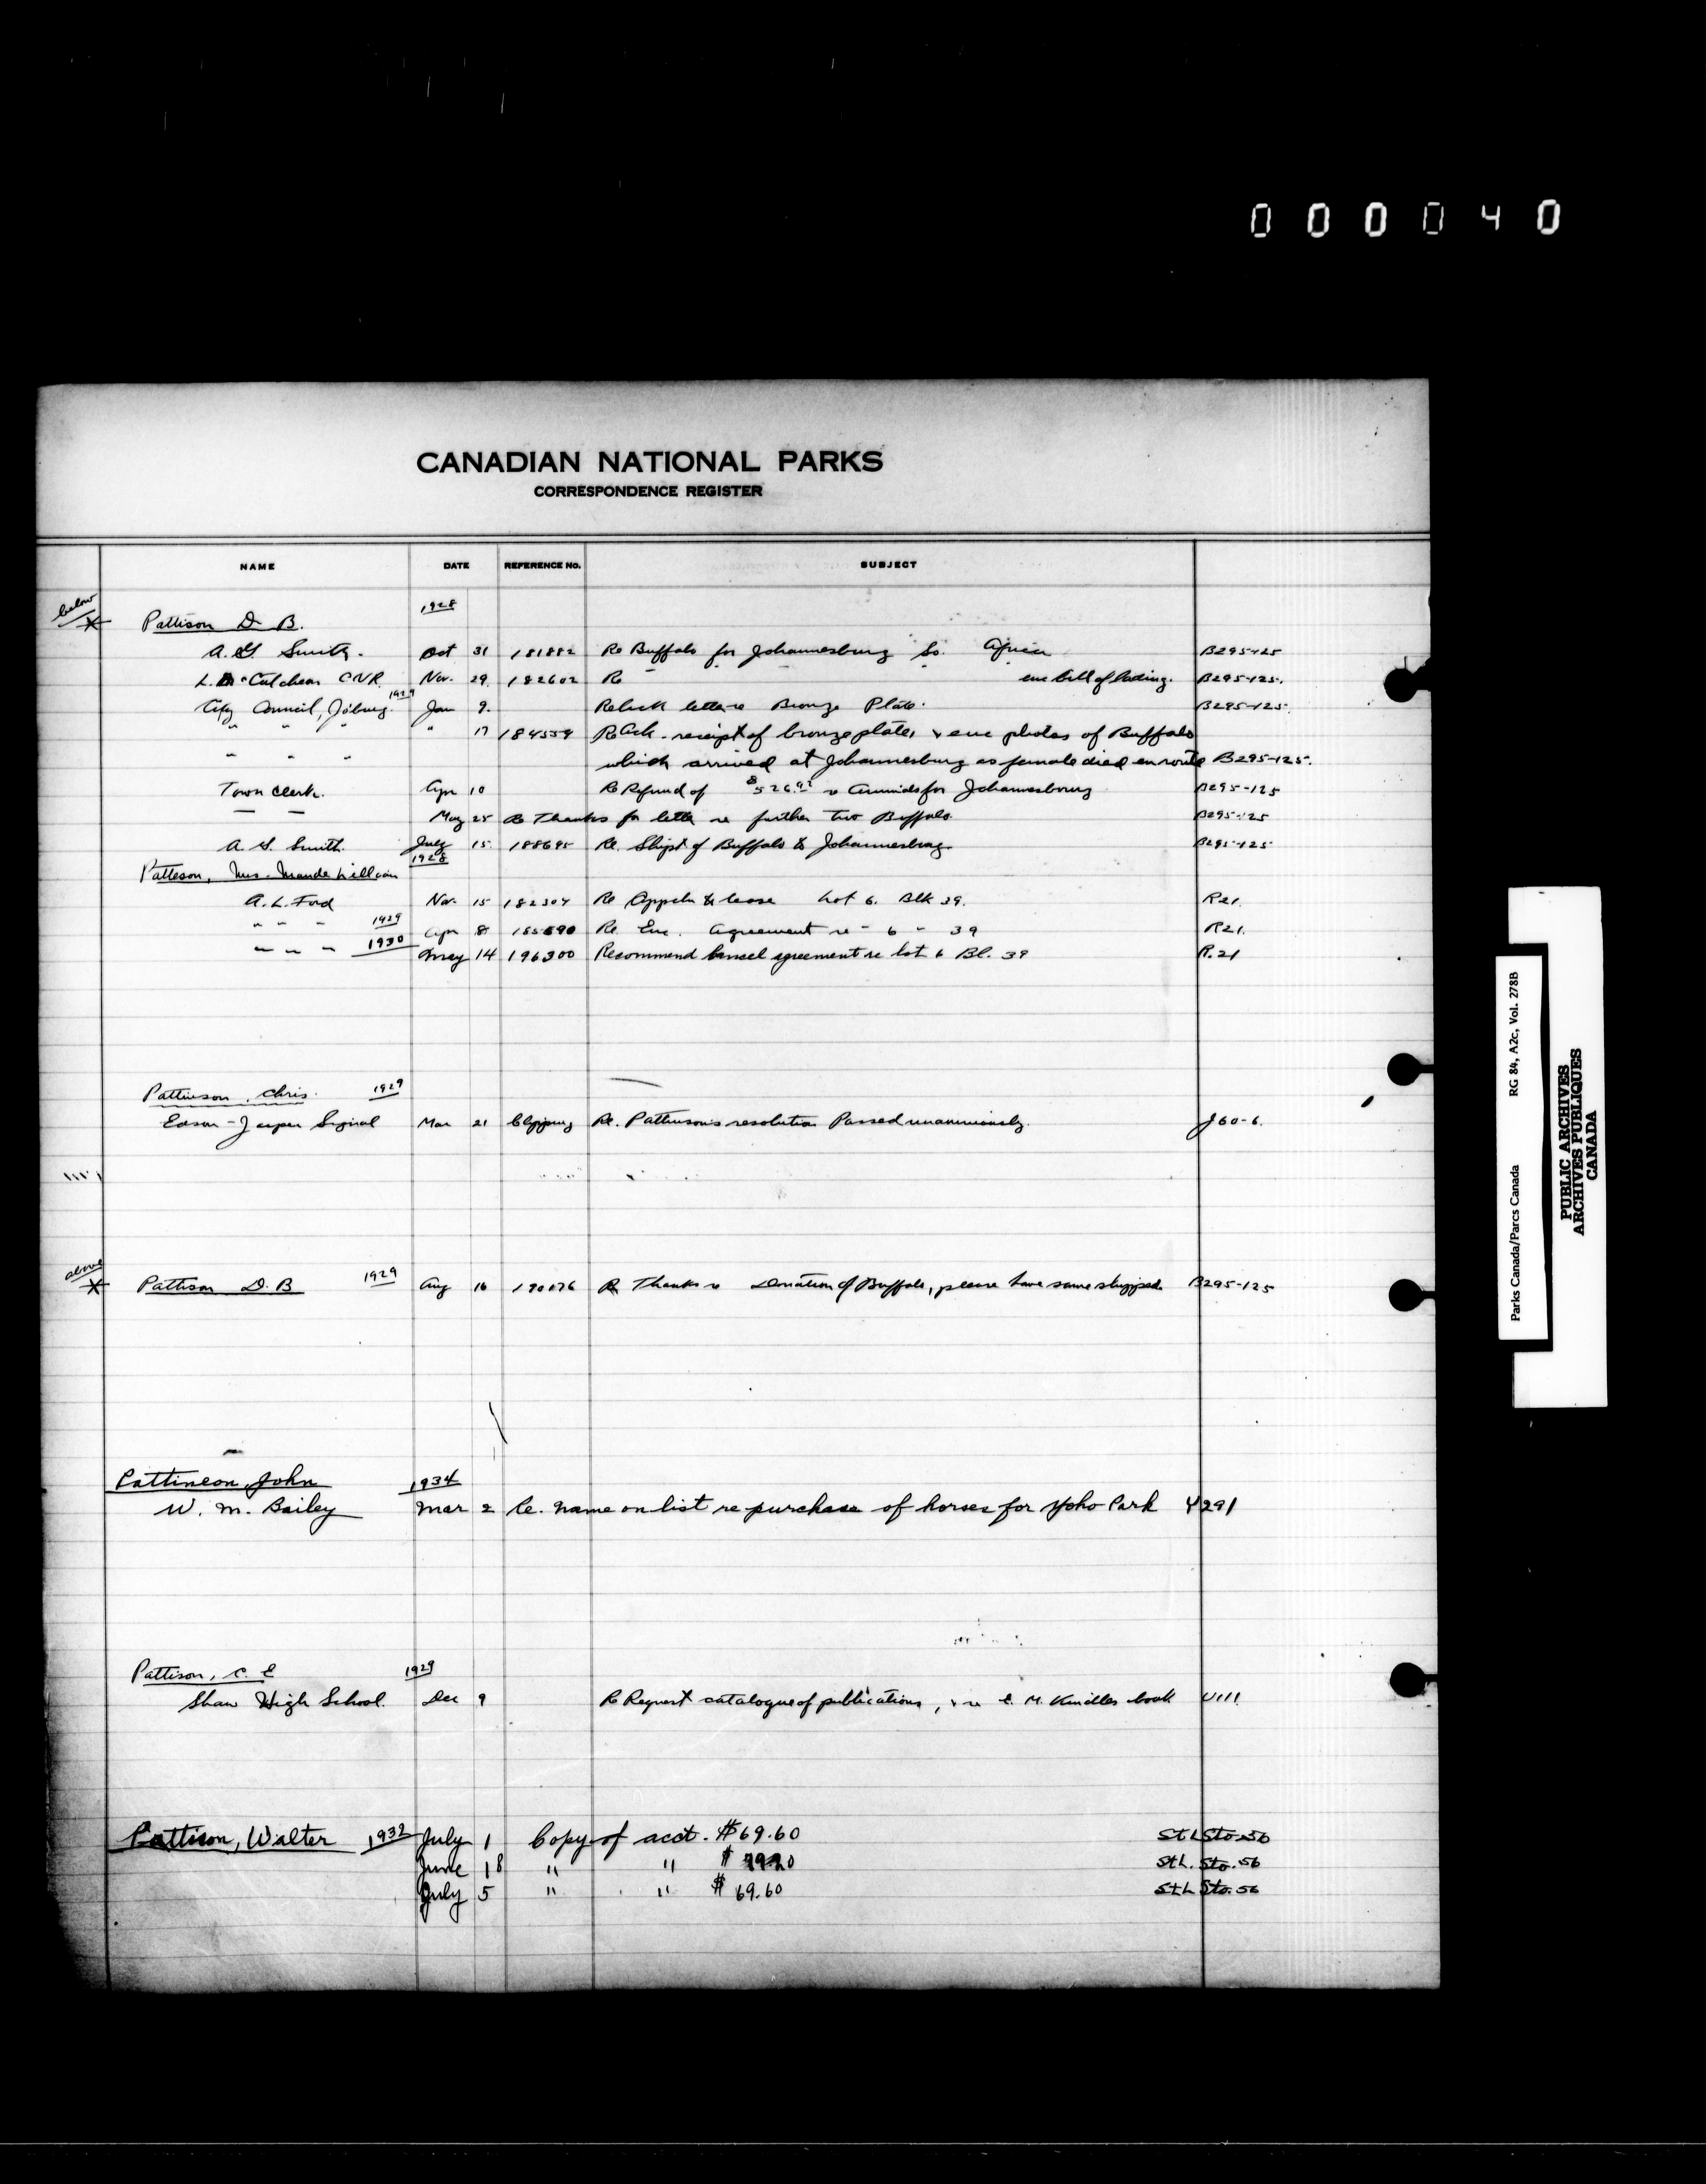 000040
CANADIAN NATIONAL PARKS
CORRESPONDENCE REGISTER
NAME DATE REFERENCE No. SUBJECT
below 1928
Pattison D. B.
A. G. Smith. Oct 31 181882 Re Buffalo for Johannesburg So. Africa B295-125
L. McCutcheon CNR. Nov. 29. 182602 Re " " " enc bill of lading. B295-125.
1929
City Council, Jo'burg. Jan 9. Re letter re Bronze Plate. B295-125.
" " " " 17 184554 Re Ack. receipt of bronze plate, & enc photos of Buffalo
" " " which arrived at Johannesburg as female died en route B295-125.
Town Clerk. Apr 10 Re Refund of $526.92 re Animals for Johannesburg B295-125
— — May 25 Re Thanks for letter re further two Buffalo. B295-125
A. G. Smith. July 15 188695 Re. Shipt of Buffalo to Johannesburg B295-125
1928
Patteson, Mrs. Maude Lillian
A. L. Ford Nov. 15 182304 Re Appln to lease Lot 6. Blk 39. R21.
" " " 1929 Apr 8 185890 Re. Enc. Agreement re - 6 - 39 R21.
" " " 1930 May 14 196300 Recommend cancel agreement re lot 6 Bl. 39 R.21
Pattinson, Chris. 1929
Edson-Jasper Signal Mar 21 Clipping Re. Pattinson's resolution Passed unanimously. J60-6.
above
Pattison D. B 1929 Aug 16 190176 Re Thanks re Donation of Buffalo, please have same shipped B295-125
Pattinson, John 1934
W. M. Bailey Mar 2 Re. name on list re purchase of horses for Yoho Park Y291
Pattison, C. E 1929
Shaw High School. Dec 9 Re Request catalogue of publications, & re E. M. Kindles book U111
Pattison, Walter 1932 July 1 Copy of acct. $69.60 StL Sto. 56
June 18 " " $ StL. Sto. 56
July 5 " " $69.60 StL Sto. 56
Parks Canada/Parcs Canada RG 84, A2c, Vol. 278B
PUBLIC ARCHIVES
ARCHIVES PUBLIQUES
CANADA